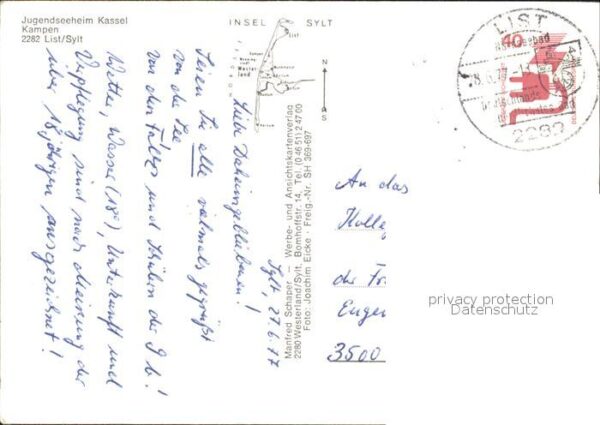 Jugendseeheim Kassel
Kampen
2282 List/Sylt
INSEL SYLT
Sylt, 27.6.77
Liebe Daheimgebliebenen!
Seien Sie alle vielmals gegrüßt
von der See
von den und Schülern der 9 b!
Wetter, Wasser (18°), Unterkunft und
Verpflegung sind nach Meinung der
über 18jährigen ausgezeichnet!
Manfred Schaper – Werbe- und Ansichtskartenverlag
2280 Westerland/Sylt, Bomhoffstr. 14, Tel. (0 46 51) 2 47 00
Foto: Joachim Eicke · Freig.-Nr. SH 369-697
N
S
An das
Kolleg
der Fr
Eugen
3500
LIST
40
2282
privacy protection
Datenschutz